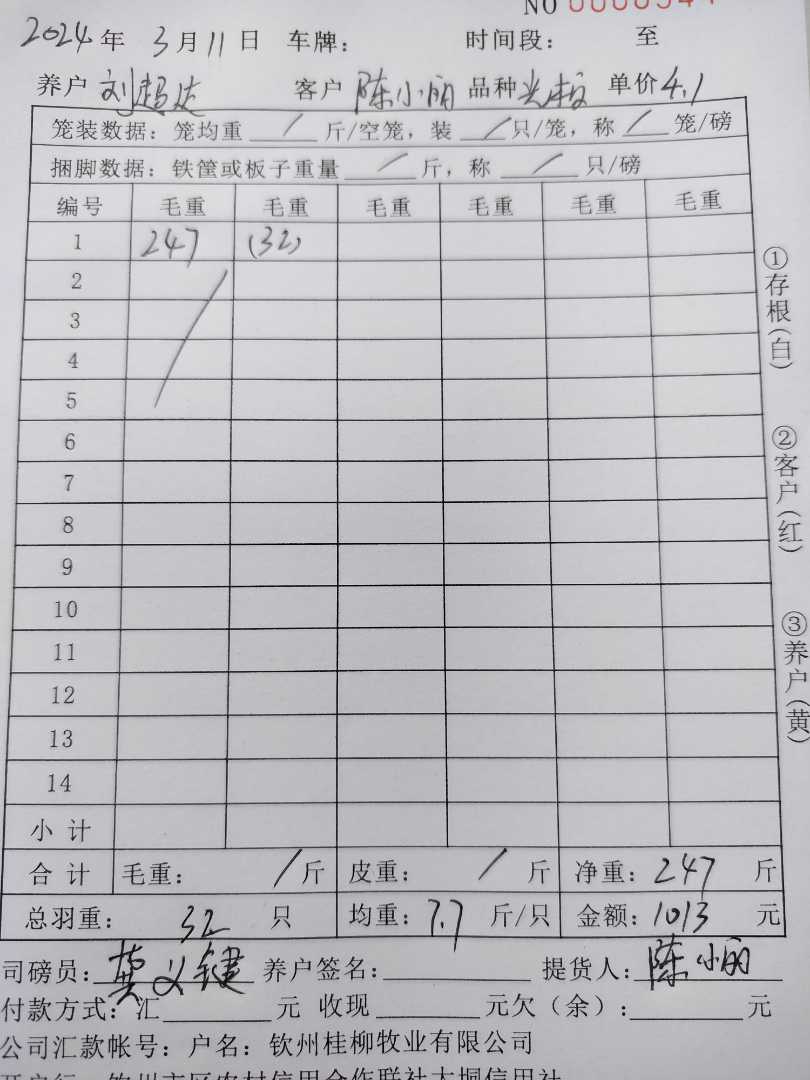 NO 0000544
2024年 3月11日 车牌： 时间段： 至
养户 刘超达 客户 陈小丽 品种 单价4.1
笼装数据：笼均重 / 斤/空笼，装 / 只/笼，称 / 笼/磅
捆脚数据：铁筐或板子重量 / 斤，称 / 只/磅
编号 毛重 毛重 毛重 毛重 毛重 毛重
1 247 (32)
2
3
4
5
6
7
8
9
10
11
12
13
14
小计
合计 毛重： / 斤 皮重： / 斤 净重：247 斤
总羽重： 32 只 均重：7.7 斤/只 金额：1013 元
司磅员：莫义键 养户签名： 提货人：陈小丽
付款方式：汇 元 收现 元欠（余）： 元
公司汇款帐号：户名：钦州桂柳牧业有限公司
开户行：钦州市区农村信用合作联社大垌信用社
①存根(白)
②客户(红)
③养户(黄)